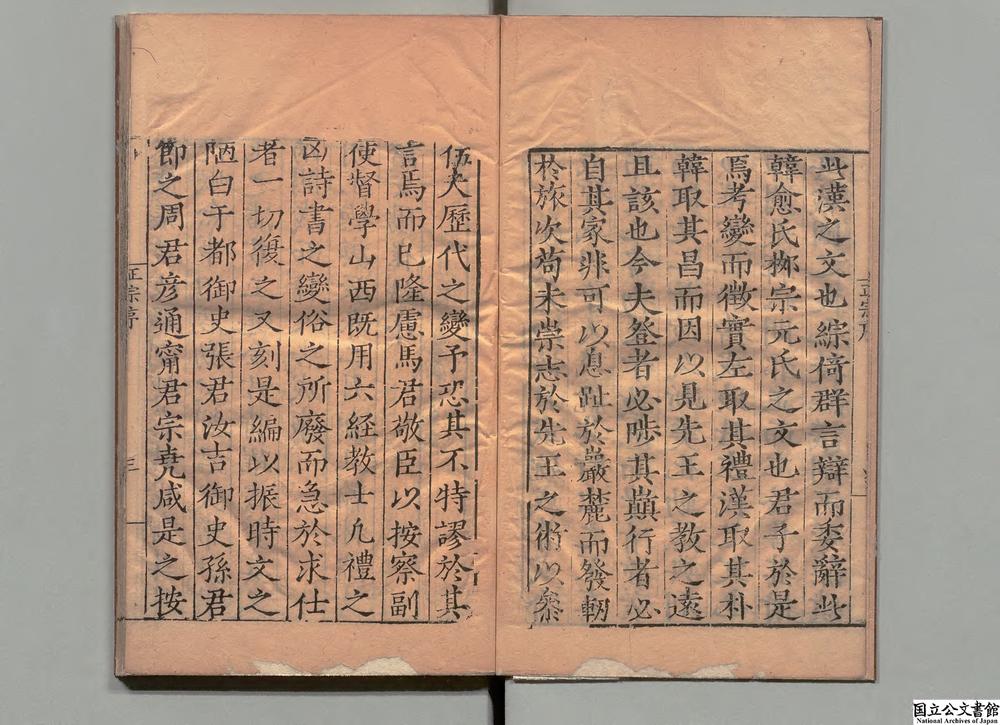 此漢之文也綜倚群言辯而委辭此
韓愈氏栁宗元氏之文也君子於是
焉考變而徵實左取其禮漢取其朴
韓取其昌而因以見先王之教之遠
且該也今夫登者必陟其巔行者必
自其家非可以息趾於巖麓而發軔
於旅次苟未崇志於先王之術以叅
伍夫歷代之變予恐其不特謬於其
言焉而巳隆慮馬君敬臣以按察副
使督學山西既用六経教士凡禮之
凶詩書之變俗之所廢而急於求仕
者一切復之又刻是編以振時文之
陋白于都御史張君汝吉御史孫君
節之周君彦通甯君宗堯咸是之按
正宗序
三
国立公文書館
National Archives of Japan